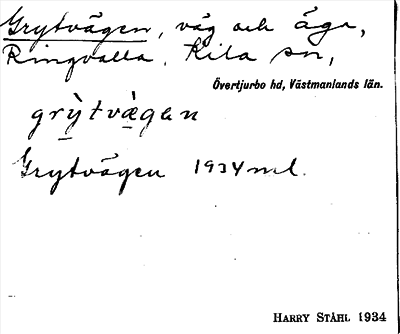 Grytvägen, väg och äga,
Ringvalla, Kila sn,
Övertjurbo hd, Västmanlands län.
grỳtvägen
Grytvägen 1934 ml.
HARRY STÅHL 1934